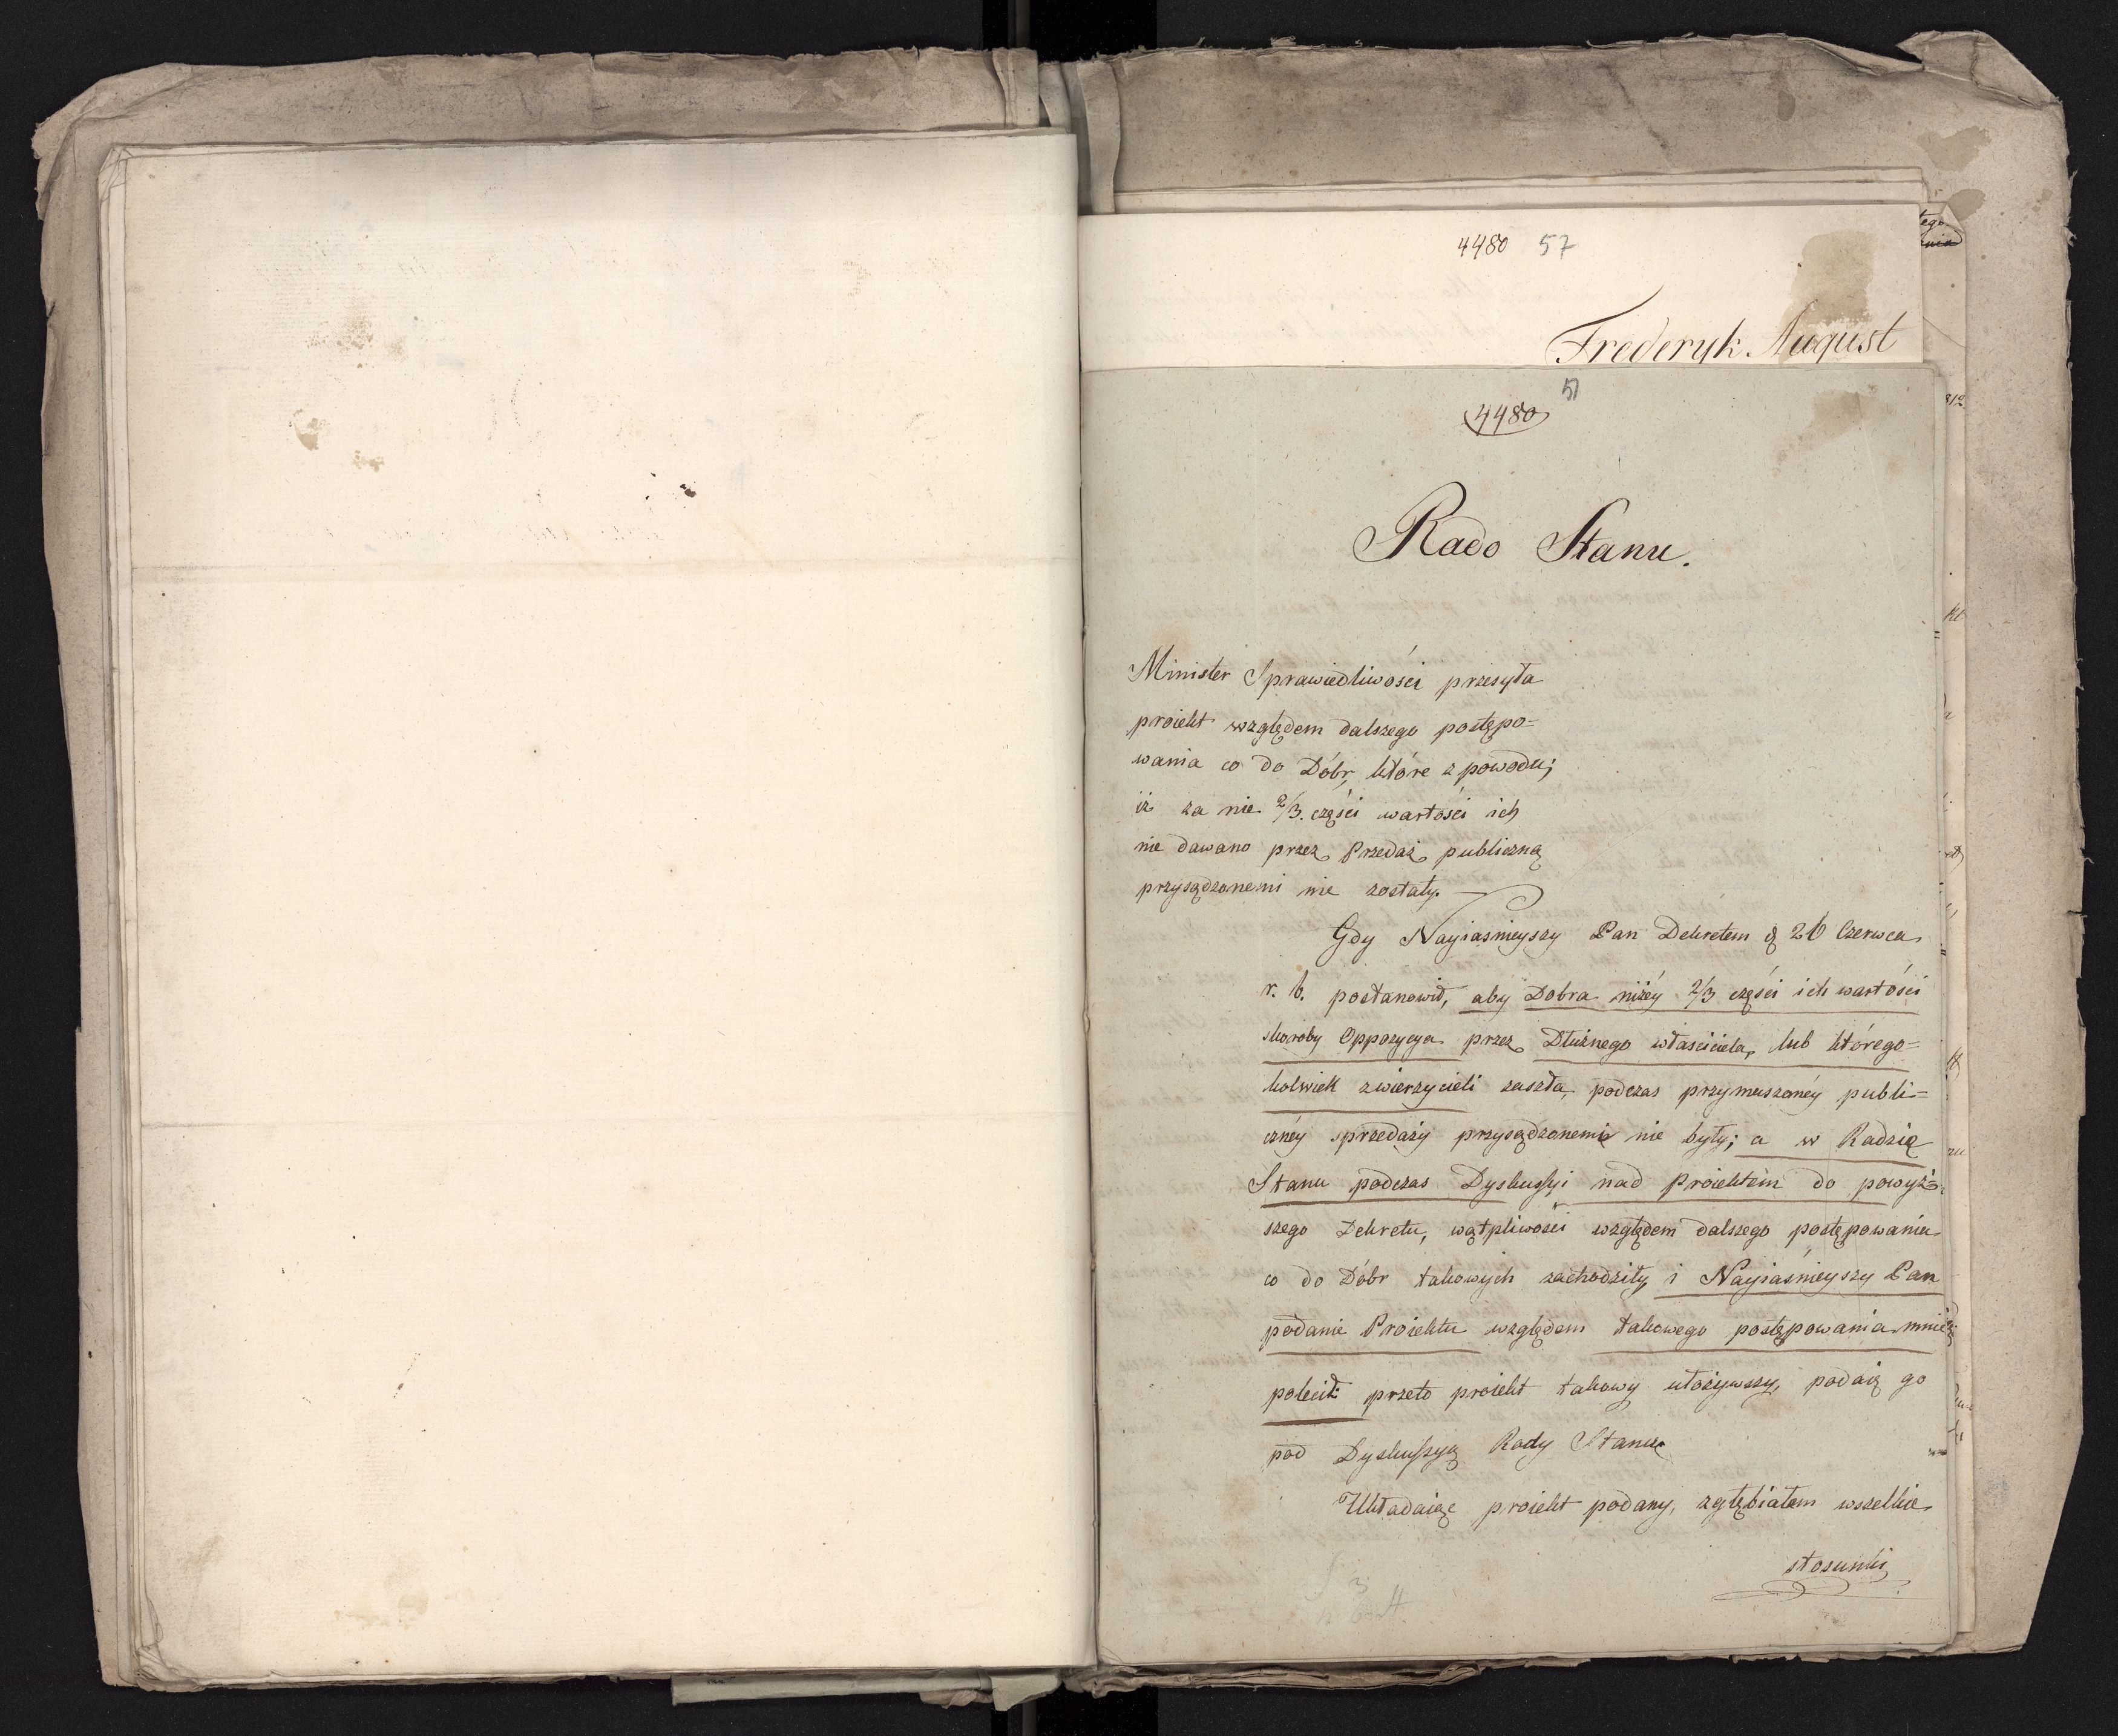 4480 57
Frederyk August
51
4480
Rado Stanu.
Minister Sprawiedliwości przesyła
proiekt względem dalszego postępo=
wania co do Dóbr, które z powodu;
iż za nie 2/3. części wartości ich
nie dawano przez Przedaż publiczną
przysądzonemi nie zostały.
Gdy Nayiasnieyszy Pan Dekretem d 26 Czerwca
r. b. postanowił, aby Dobra niżéy 2/3 części ich wartości
skoroby Oppozycya przez Dłużnego właściciela, lub którego=
kolwiek zwierzycieli zaszła, podczas przymuszonéy publi=
cznéy sprzedaży przysądzonemi nie były; a w Radzie
Stanu podczas Dyskussyi nad Proiektem do powyż=
szego Dekretu, wątpliwości względem dalszego postępowania
co do Dóbr takowych zachodziły, i Nayiaśnieyszy Pan
podanie Proiektu względem takowego postępowania mnie
polecił: przeto proiekt takowy ułożywszy, podaię go
pod Dyskussyą Rady Stanu.
Układaiąc proiekt podany, zgłębiałem wszelkie
stosunki